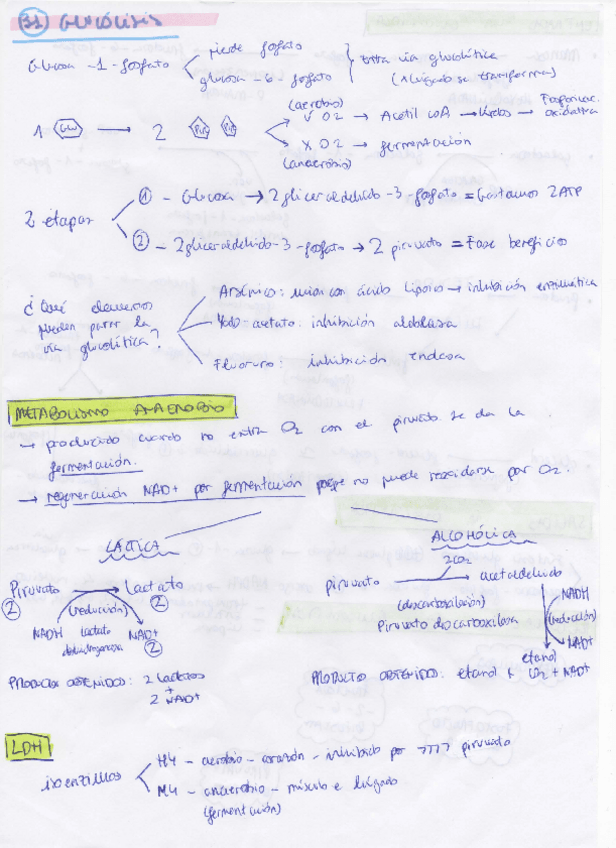 31) GLUCÓLISIS
Glucosa - 1 - fosfato
pierde fosfato
glucosa - 6 - fosfato
entra vía glucolítica
(hígado se transforma)
1 Glu → 2 Pir Pir
(aerobio)
✓ O2 → Acetil CoA → Krebs → Fosforilac. oxidativa
X O2 → fermentación
(anaerobio)
2 etapas
① - Glucosa → 2 gliceraldehido - 3 - fosfato = Gastamos 2 ATP
② - 2 gliceraldehido - 3 - fosfato → 2 piruvato = Fase beneficios
¿Qué elementos pueden parar la vía glucolítica?
Arsénico: unión con ácido lipoico → inhibición enzimática
Yodo-acetato: inhibición aldolasa
Fluoruro: inhibición enolasa
METABOLISMO ANAEROBIO
→ producido cuando no entra O2 con el piruvato. Se da la
fermentación.
→ regeneración NAD+ por fermentación no puede reoxidarse por O2.
LÁCTICA
ALCOHÓLICA
Piruvato → Lactato
② ②
(reducción)
NADH lactato deshidrogenasa NAD+
②
PRODUCTOS OBTENIDOS: 2 lactatos
+
2 NAD+
2CO2
piruvato → acetaldehido
(descarboxilación)
Piruvato descarboxilasa
NADH
(reducción)
NAD+
etanol
PRODUCTO OBTENIDO: etanol + CO2 + NAD+
LDH
isoenzimas
H4 - aerobio - corazón - inhibido por ↑↑↑↑ piruvato
M4 - anaerobio - músculo e hígado
(fermentación)